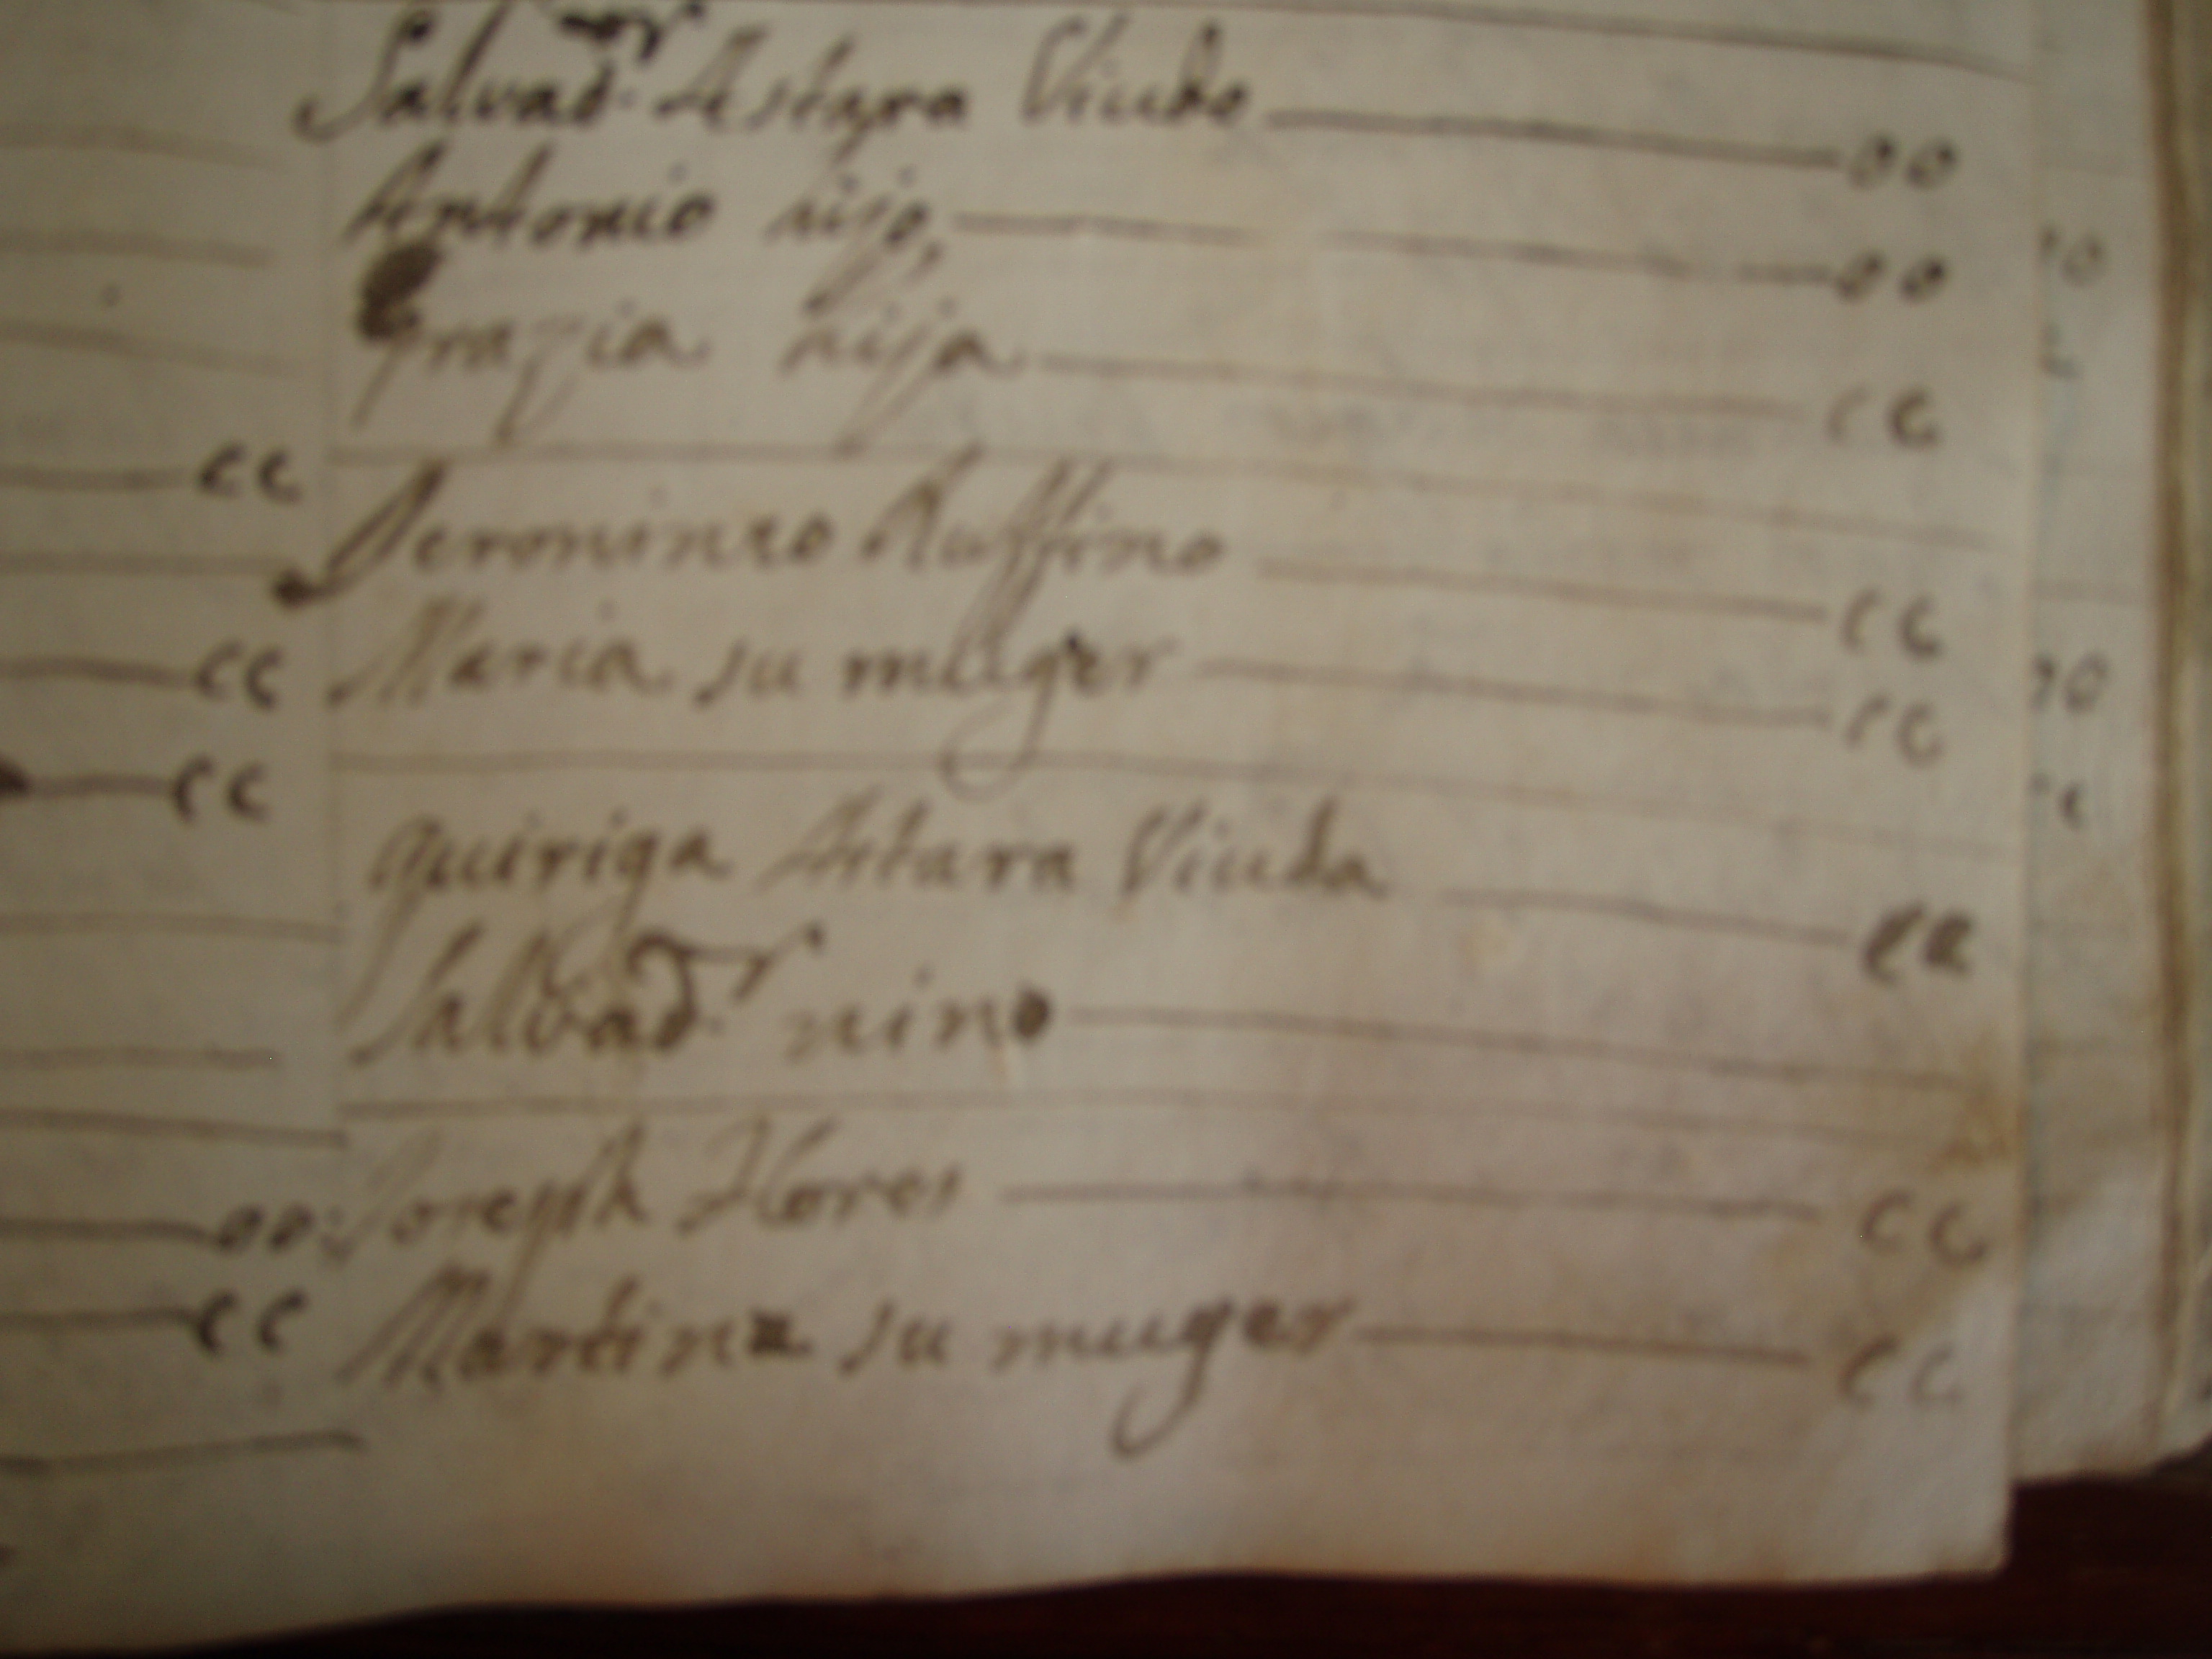 Salvad.or Astara Viudo — oo
Antonio hijo, — oo
Grazia hija — cc
Jeronimo Ruffino — cc
Maria su muger — cc
quiriga Astara Viuda — cc
Salvad.or nino —
Joseph Flores — cc
Martina su muger — cc